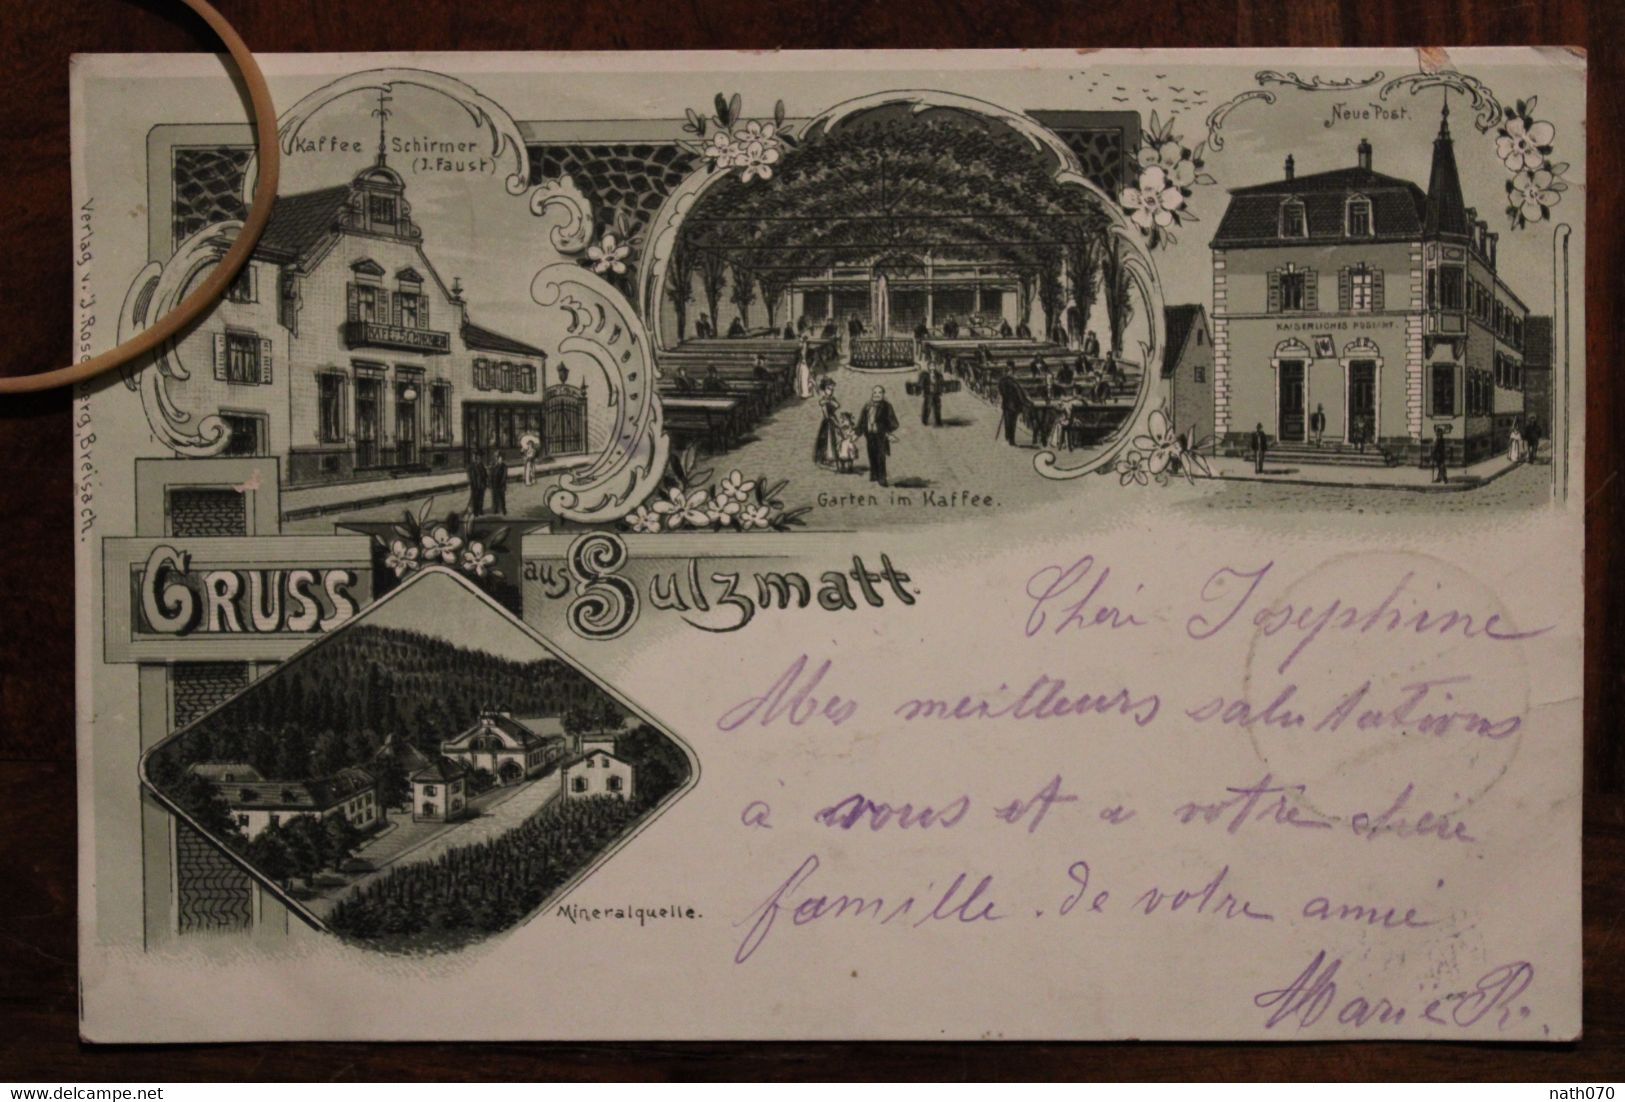 Kaffee Schirmer
(J. Faust)
Neue Post.
KAISERLICHES POSTAMT.
Garten im Kaffee.
GRUSS aus Sulzmatt.
Mineralquelle.
Verlag v. J. Rosenberg, Breisach.
Chéri Josephine
Mes meilleurs salutations
à vous et a votre chère
famille. de votre amie
Marie R.
delcampe.net
nath070